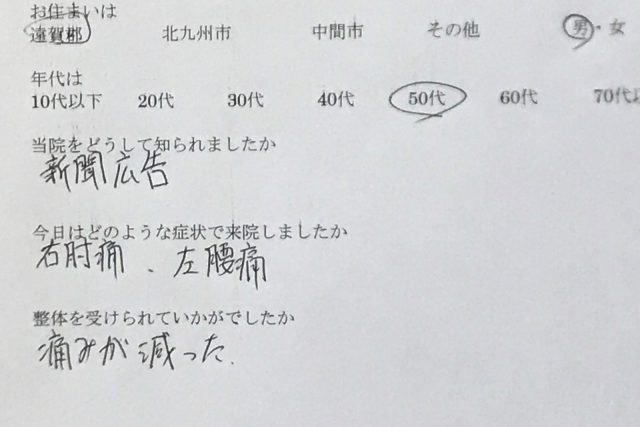 お住まいは
遠賀郡 北九州市 中間市 その他 男・女
年代は
10代以下 20代 30代 40代 50代 60代 70代以
当院をどうして知られましたか
新聞広告
今日はどのような症状で来院しましたか
右肘痛、左腰痛
整体を受けられていかがでしたか
痛みが減った.